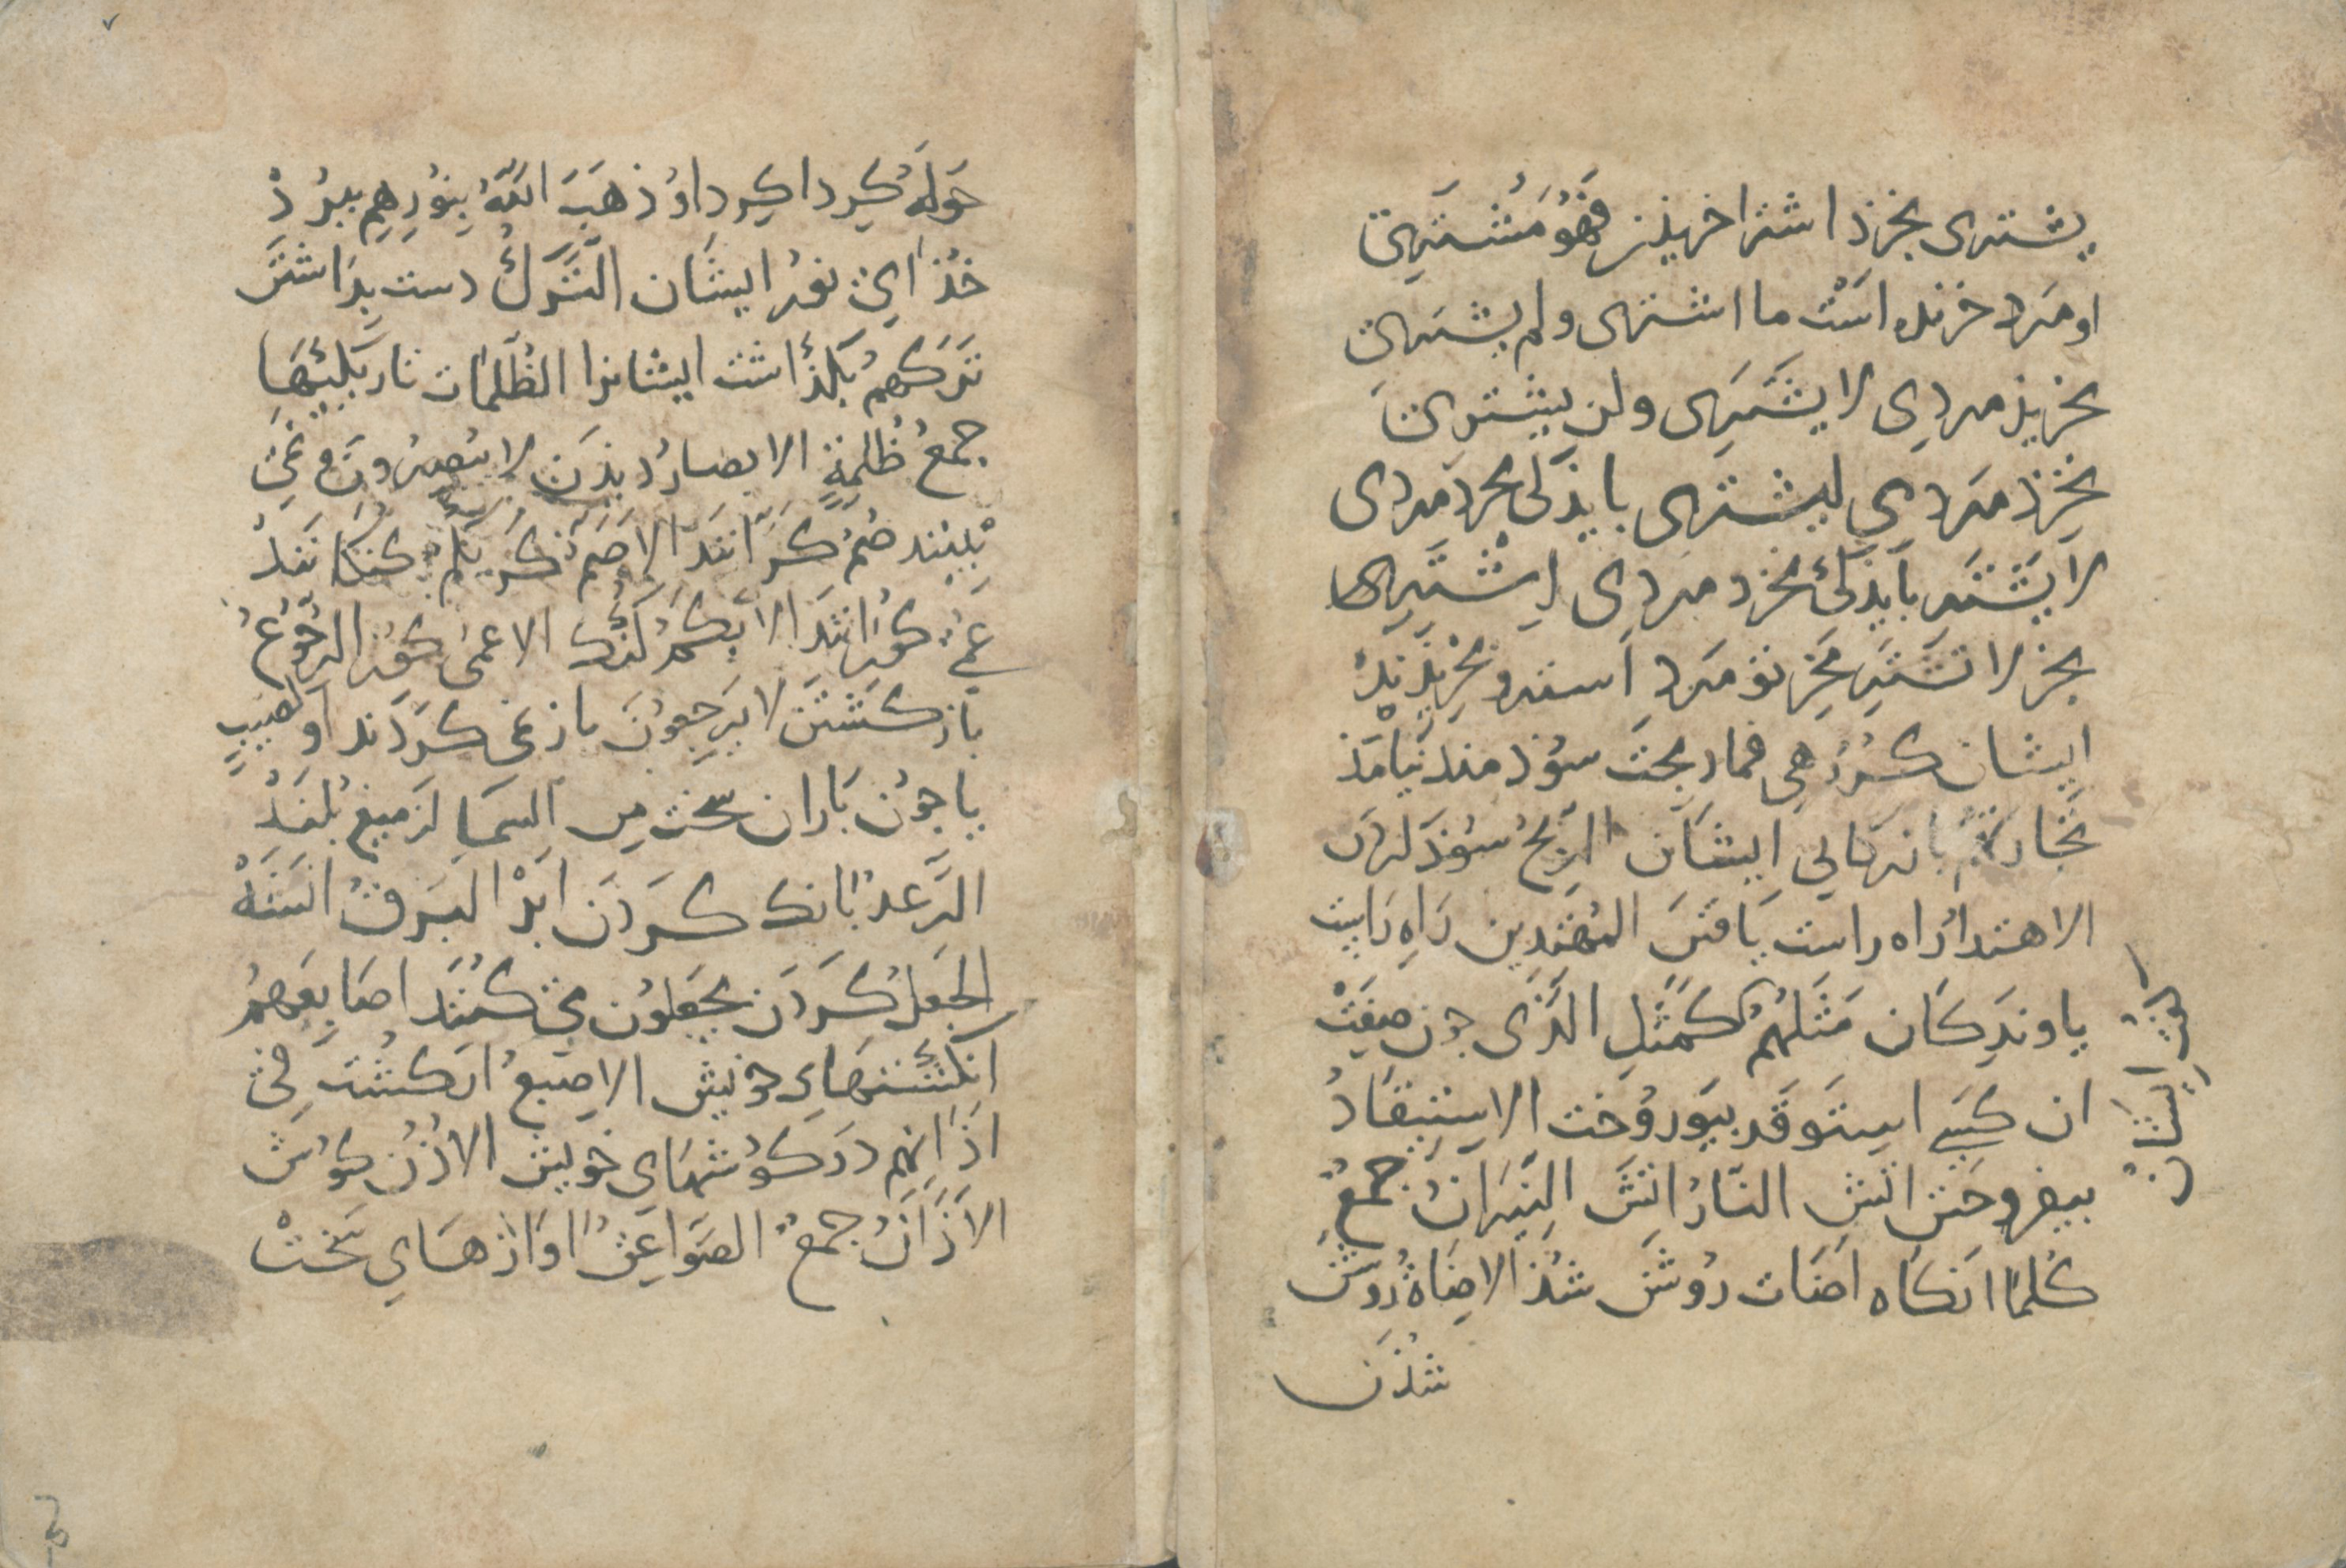 يشترى بخرذ اشترا خريذن فهُوَ مُشترِى
او مَرد خرنده است ما اشترى ولم يشترى
نخريذ مردِى لا يشترِى ولن يشترى
نخرذ مَردى ليشترى بايذكى بخرد مردى
لا يشتر بايذكى نخرد مردى اِشترِى
بخر لا تشتر مخر تو مَرد اشتروُ بخريذند
ايشان كُرُوهى فما ربحت سوُذ مند نيامذ
تجارتهم بازرگانى ايشان الربحُ سوُذ
الاهتداءُ راه راست يافتن المهتدين راه راست
ياوندكان مَثلهُم كمَثَلِ الَّذى جون صِفَت
ان كسى استَوقَد بيوروُخت الاستيقادُ
بيفروختن اتش النّارُ اتش النِّيرَانُ جمعُ
كُلما انكاه اضات روُشن شذ الاضاةُ روُشن
شذن
حَولَهُ كِرداكِرد اوُ ذهَبَ اللّهُ بِنوُرِهِم ببرُدْ
خُذاى نور ايشان التَّركُ دست بداشتن
تَرَكهمُ بگذاشت ايشانرا الظُلُمات تاريكيها
جمعُ ظُلمةٍ الابصارُ ديذن لا يُبصِرُونَ نمى
بينند صُمٌّ كرّانند الاصَمُّ كر بُكمٌ كنكانند
عمىٌ كورانند الابكَمُ كنك الاعمى كوُر الرجُوعُ
باز كشتن لا يَرجعوُن باز نمى كردند او كصيبٍ
يا جوُن باران سخت مِن السماء از ميغ بُلَند
الرَّعد بانك كردن ابر البَرقُ اتشه
الجَعلُ كردن يجعَلوُن مى كُنند اصابِعَهمُ
انكشتهاى خويش الاصبعُ انكشت فى
اذانِهم در كوُشهاى خويش الاُذُن كوُش
الاذَانُ جمعُ الصَواعِقُ اوازهاى سَخت